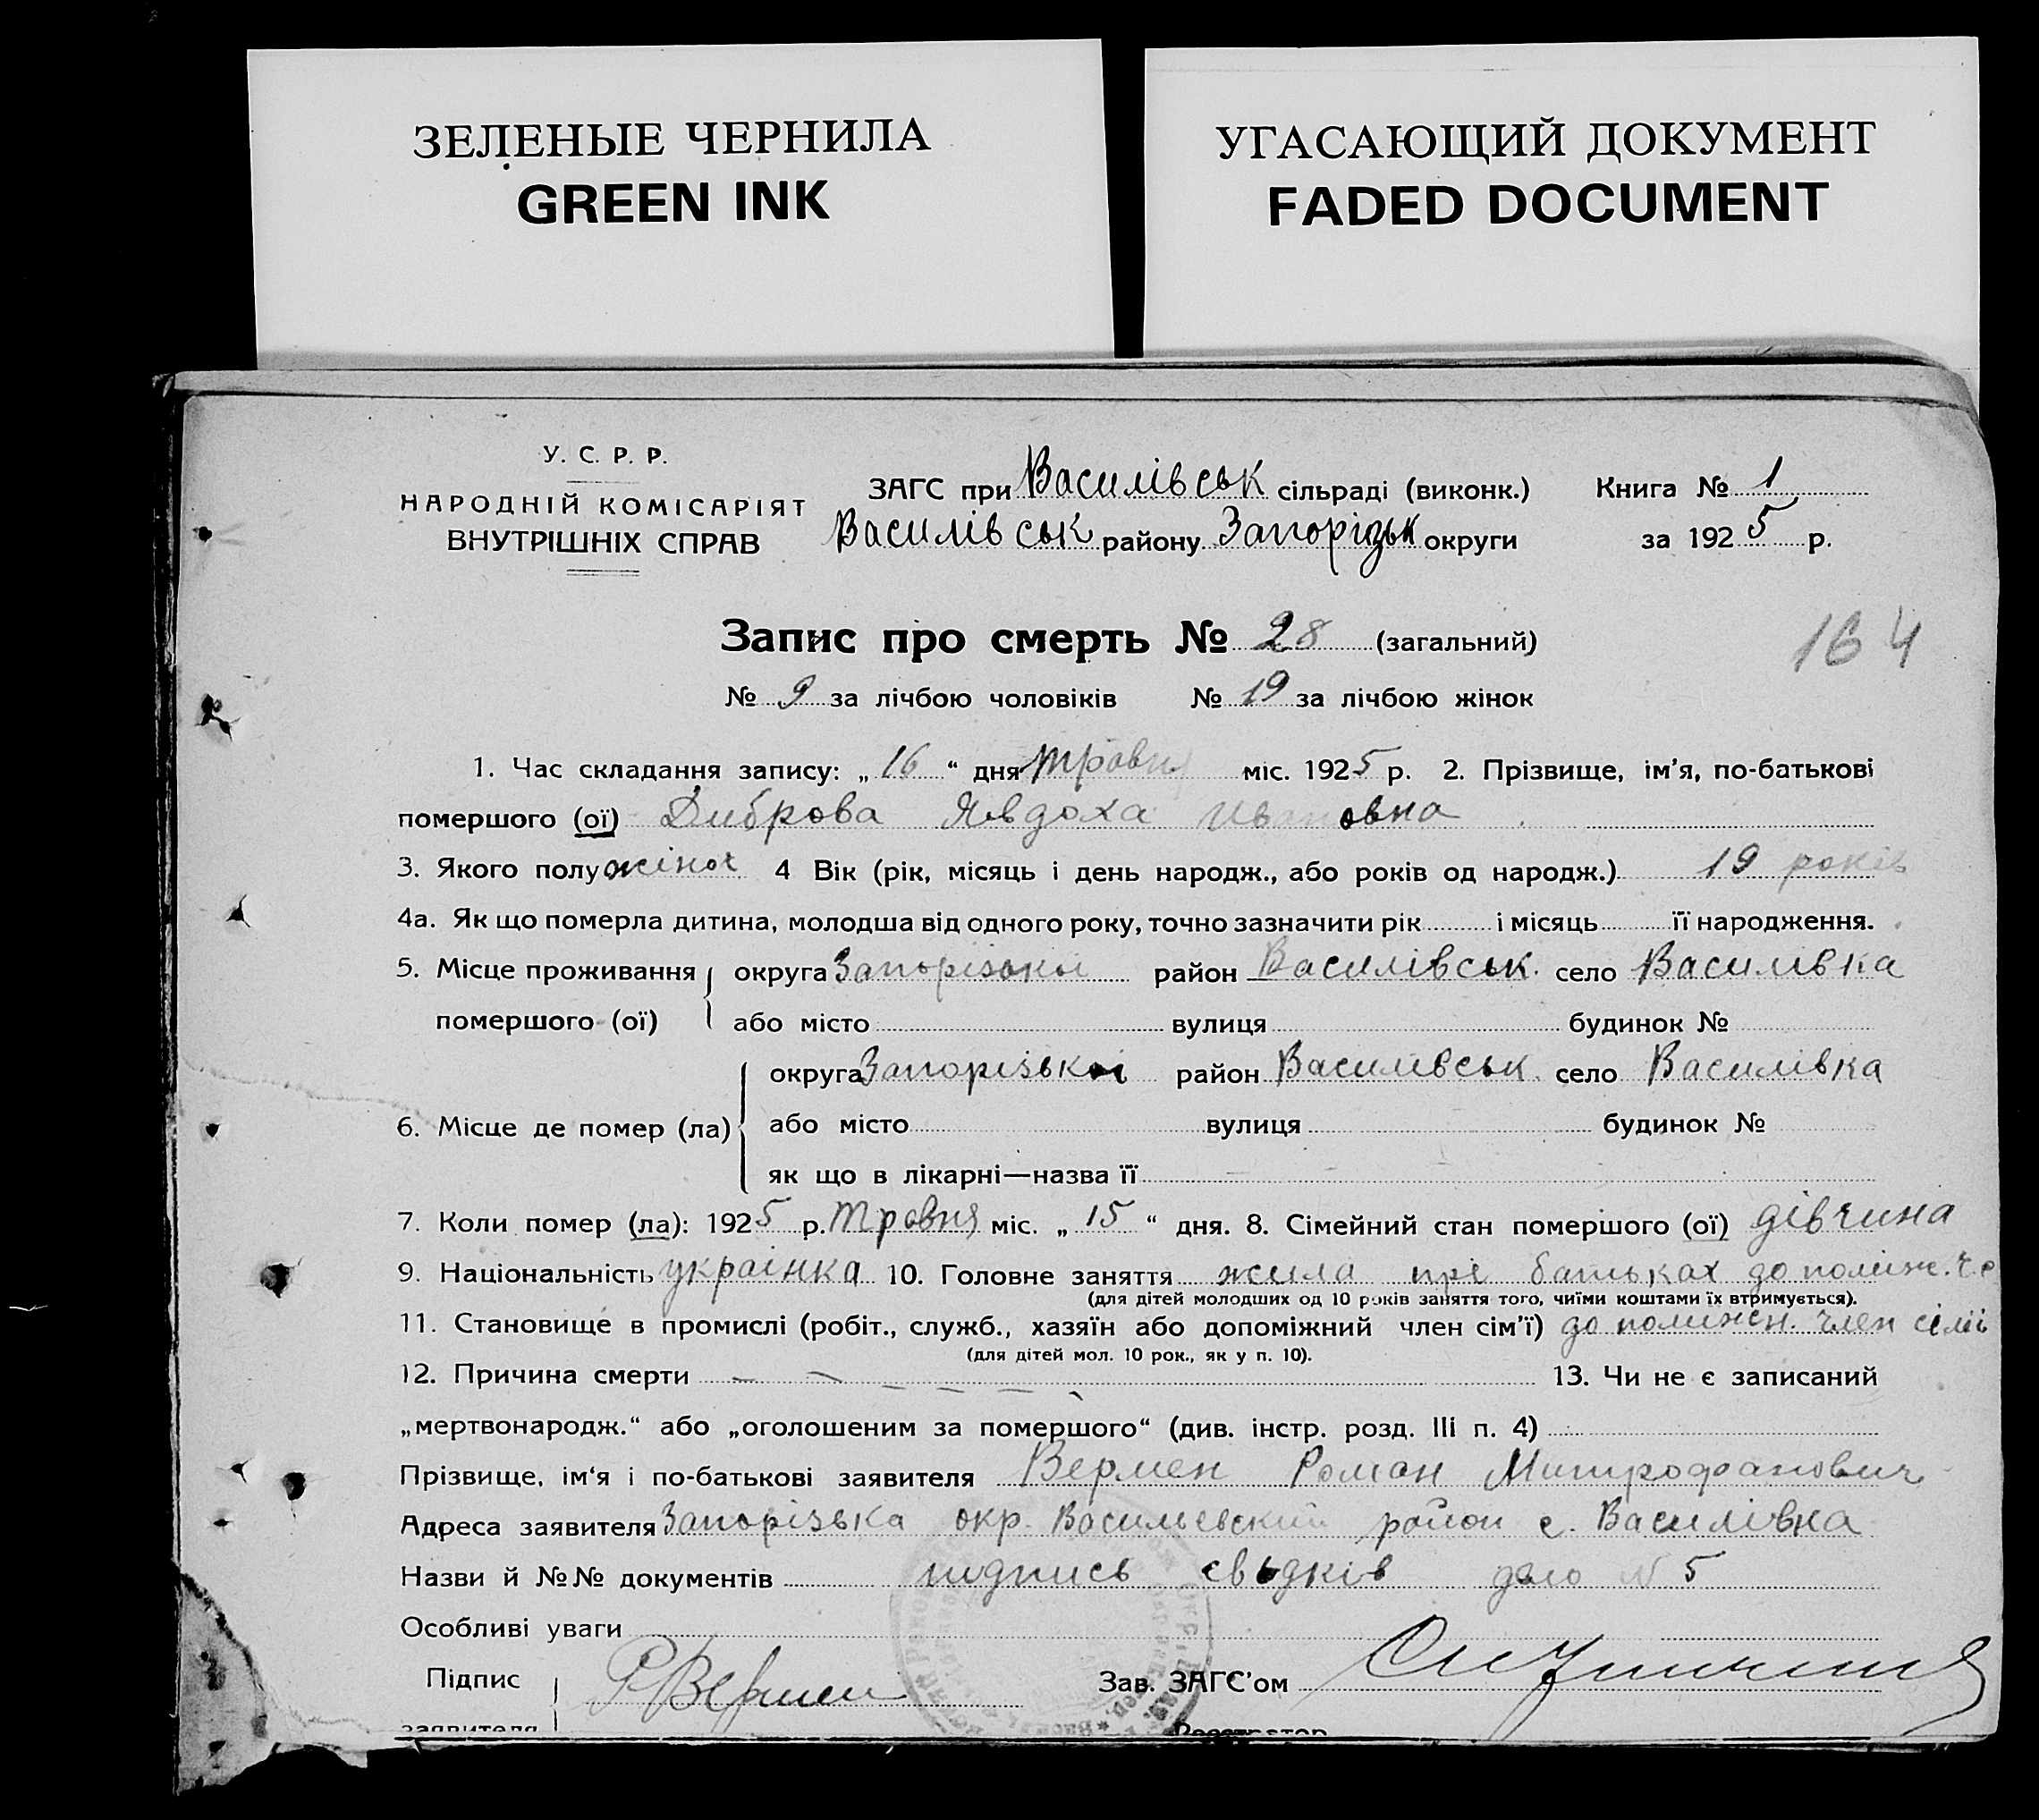 ЗЕЛЕНЫЕ ЧЕРНИЛА
GREEN INK
УГАСАЮЩИЙ ДОКУМЕНТ
FADED DOCUMENT
У. С. Р. Р.
НАРОДНІЙ КОМІСАРІЯТ
ВНУТРІШНІХ СПРАВ
ЗАГС при Василівськ сільраді (виконк.) Книга № 1
Василівськ району Запорізьк округи за 1925 р.
Запис про смерть № 28 (загальний)
164
№ 9 за лічбою чоловіків № 19 за лічбою жінок
1. Час складання запису: „16“ дня травня міс. 1925 р. 2. Прізвище, ім’я, по-батькові
помершого (ої) Диброва Явдоха Ивановна
3. Якого полу жіноч 4 Вік (рік, місяць і день народж., або років од народж.) 19 років
4а. Як що померла дитина, молодша від одного року, точно зазначити рік і місяць її народження.
5. Місце проживання округа Запорізької район Василівськ. село Василівка
помершого (ої) або місто вулиця будинок №
округа Запорізької район Василівськ. село Василівка
6. Місце де помер (ла) або місто вулиця будинок №
як що в лікарні—назва її
7. Коли помер (ла): 1925 р. травня міс. „15“ дня. 8. Сімейний стан помершого (ої) дівчина
9. Національність українка 10. Головне заняття жила прі батьках до полиж. ч. с
(для дітей молодших од 10 років заняття того, чиїми коштами їх втримується).
11. Становище в промислі (робіт., служб., хазяїн або допоміжний член сім’ї) до полижен. член сімї
(для дітей мол. 10 рок., як у п. 10).
12. Причина смерти — — — — — — 13. Чи не є записаний
„мертвонародж.“ або „оголошеним за помершого“ (див. інстр. розд. III п. 4)
Прізвище, ім‘я і по-батькові заявителя Вермен Роман Митрофанович
Адреса заявителя Запорізька окр. Васильевский район с. Василівка
Назви й №№ документів подпись свьдків дело N 5
Особливі уваги
Підпис Р Вермен Зав. ЗАГС’ом
заявителя Реєстратор